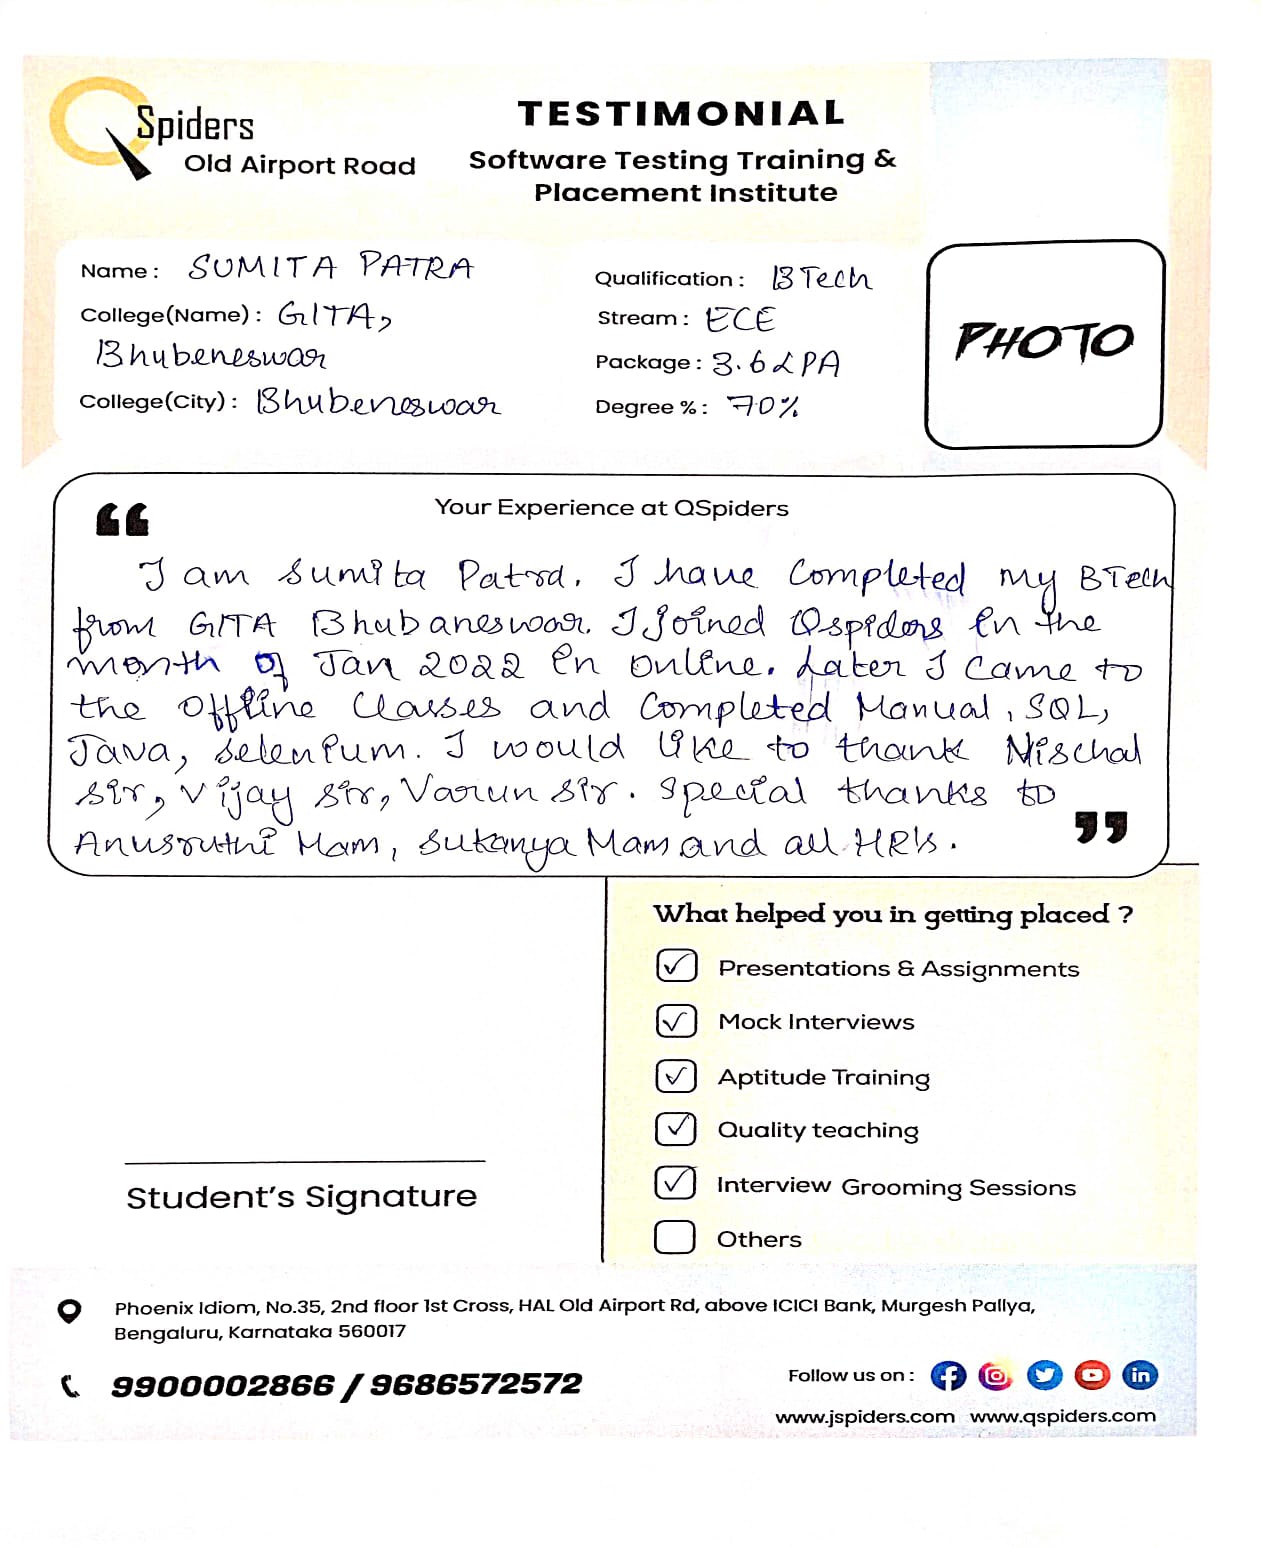 QSpiders
Old Airport Road
TESTIMONIAL
Software Testing Training &
Placement Institute
Name : SUMITA PATRA
College(Name) : GITA,
Bhubeneswar
College(City) : Bhubeneswar
Qualification : B Tech
Stream : ECE
Package : 3.6 LPA
Degree % : 70%
PHOTO
Your Experience at QSpiders
“
I am Sumita Patra. I have completed my BTech
from GITA Bhubaneswar. I joined Qspiders in the
month of Jan 2022 in online. Later I came to
the offline classes and completed Manual, SQL,
Java, Selenium. I would like to thank Nischal
sir, Vijay sir, Varun sir. Special thanks to
Anusruthi Mam, Sukanya Mam and all HR's.
”
What helped you in getting placed ?
✓ Presentations & Assignments
✓ Mock Interviews
✓ Aptitude Training
✓ Quality teaching
✓ Interview Grooming Sessions
Others
Student's Signature
Phoenix Idiom, No.35, 2nd floor 1st Cross, HAL Old Airport Rd, above ICICI Bank, Murgesh Pallya,
Bengaluru, Karnataka 560017
9900002866 / 9686572572
Follow us on :
www.jspiders.com www.qspiders.com